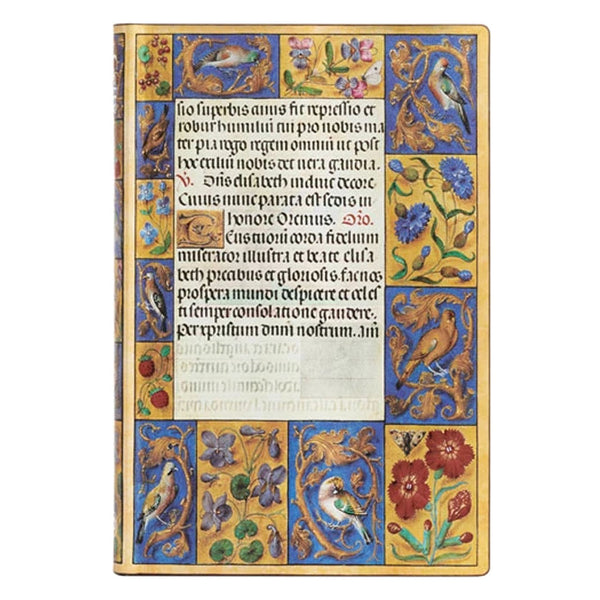 sio superbis cuius fit repressio et
robur humiliū cui pro nobis ma
ter pia rogo regem omniū ut post
hec exiliū nobis det vera gaudia.
V. Dn̄s elisabeth induit decore
Cuius nunc parata est sedis in
honore Oremus. Oro.
Eus tuorū corda fidelium
miserator illustra et beate elisa
beth precibus et gloriosis fac nos
prospera mundi despicere et celes
ti semper consolatione gaudere.
per xpristum dnm̄ nostrum. am̄